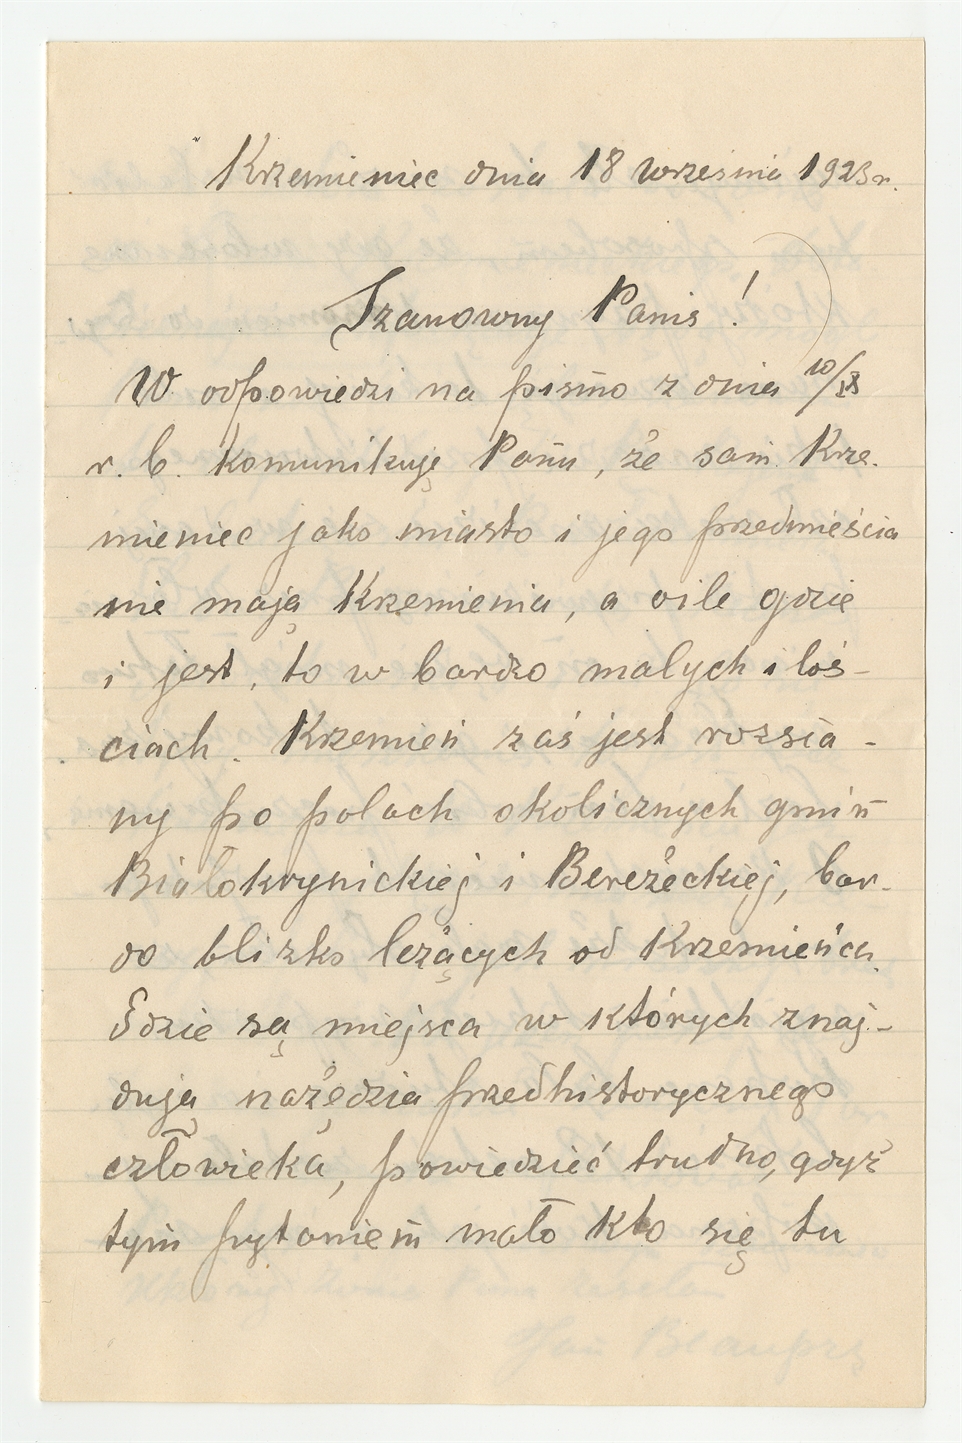 Krzemieniec dnia 18 września 1923 r.
Szanowny Panie!
W odpowiedzi na pismo z dnia 10/IX
r. b. komunikuję Panu, że sam Krze-
mieniec jako miasto i jego przedmieścia
nie mają Krzemienia, a oile gdzie
i jest, to w bardzo malych iloś-
ciach. Krzemień zaś jest rozsia-
ny po polach okolicznych gmin
Białokrynickiej i Bereżeckiej, bar-
do blizko leżących od Krzemieńca.
Gdzie są miejsca w których znaj-
dują nażędzia przedhistorycznego
człowieka, powiedzieć trudno, gdyż
tym pytaniem mało kto się tu